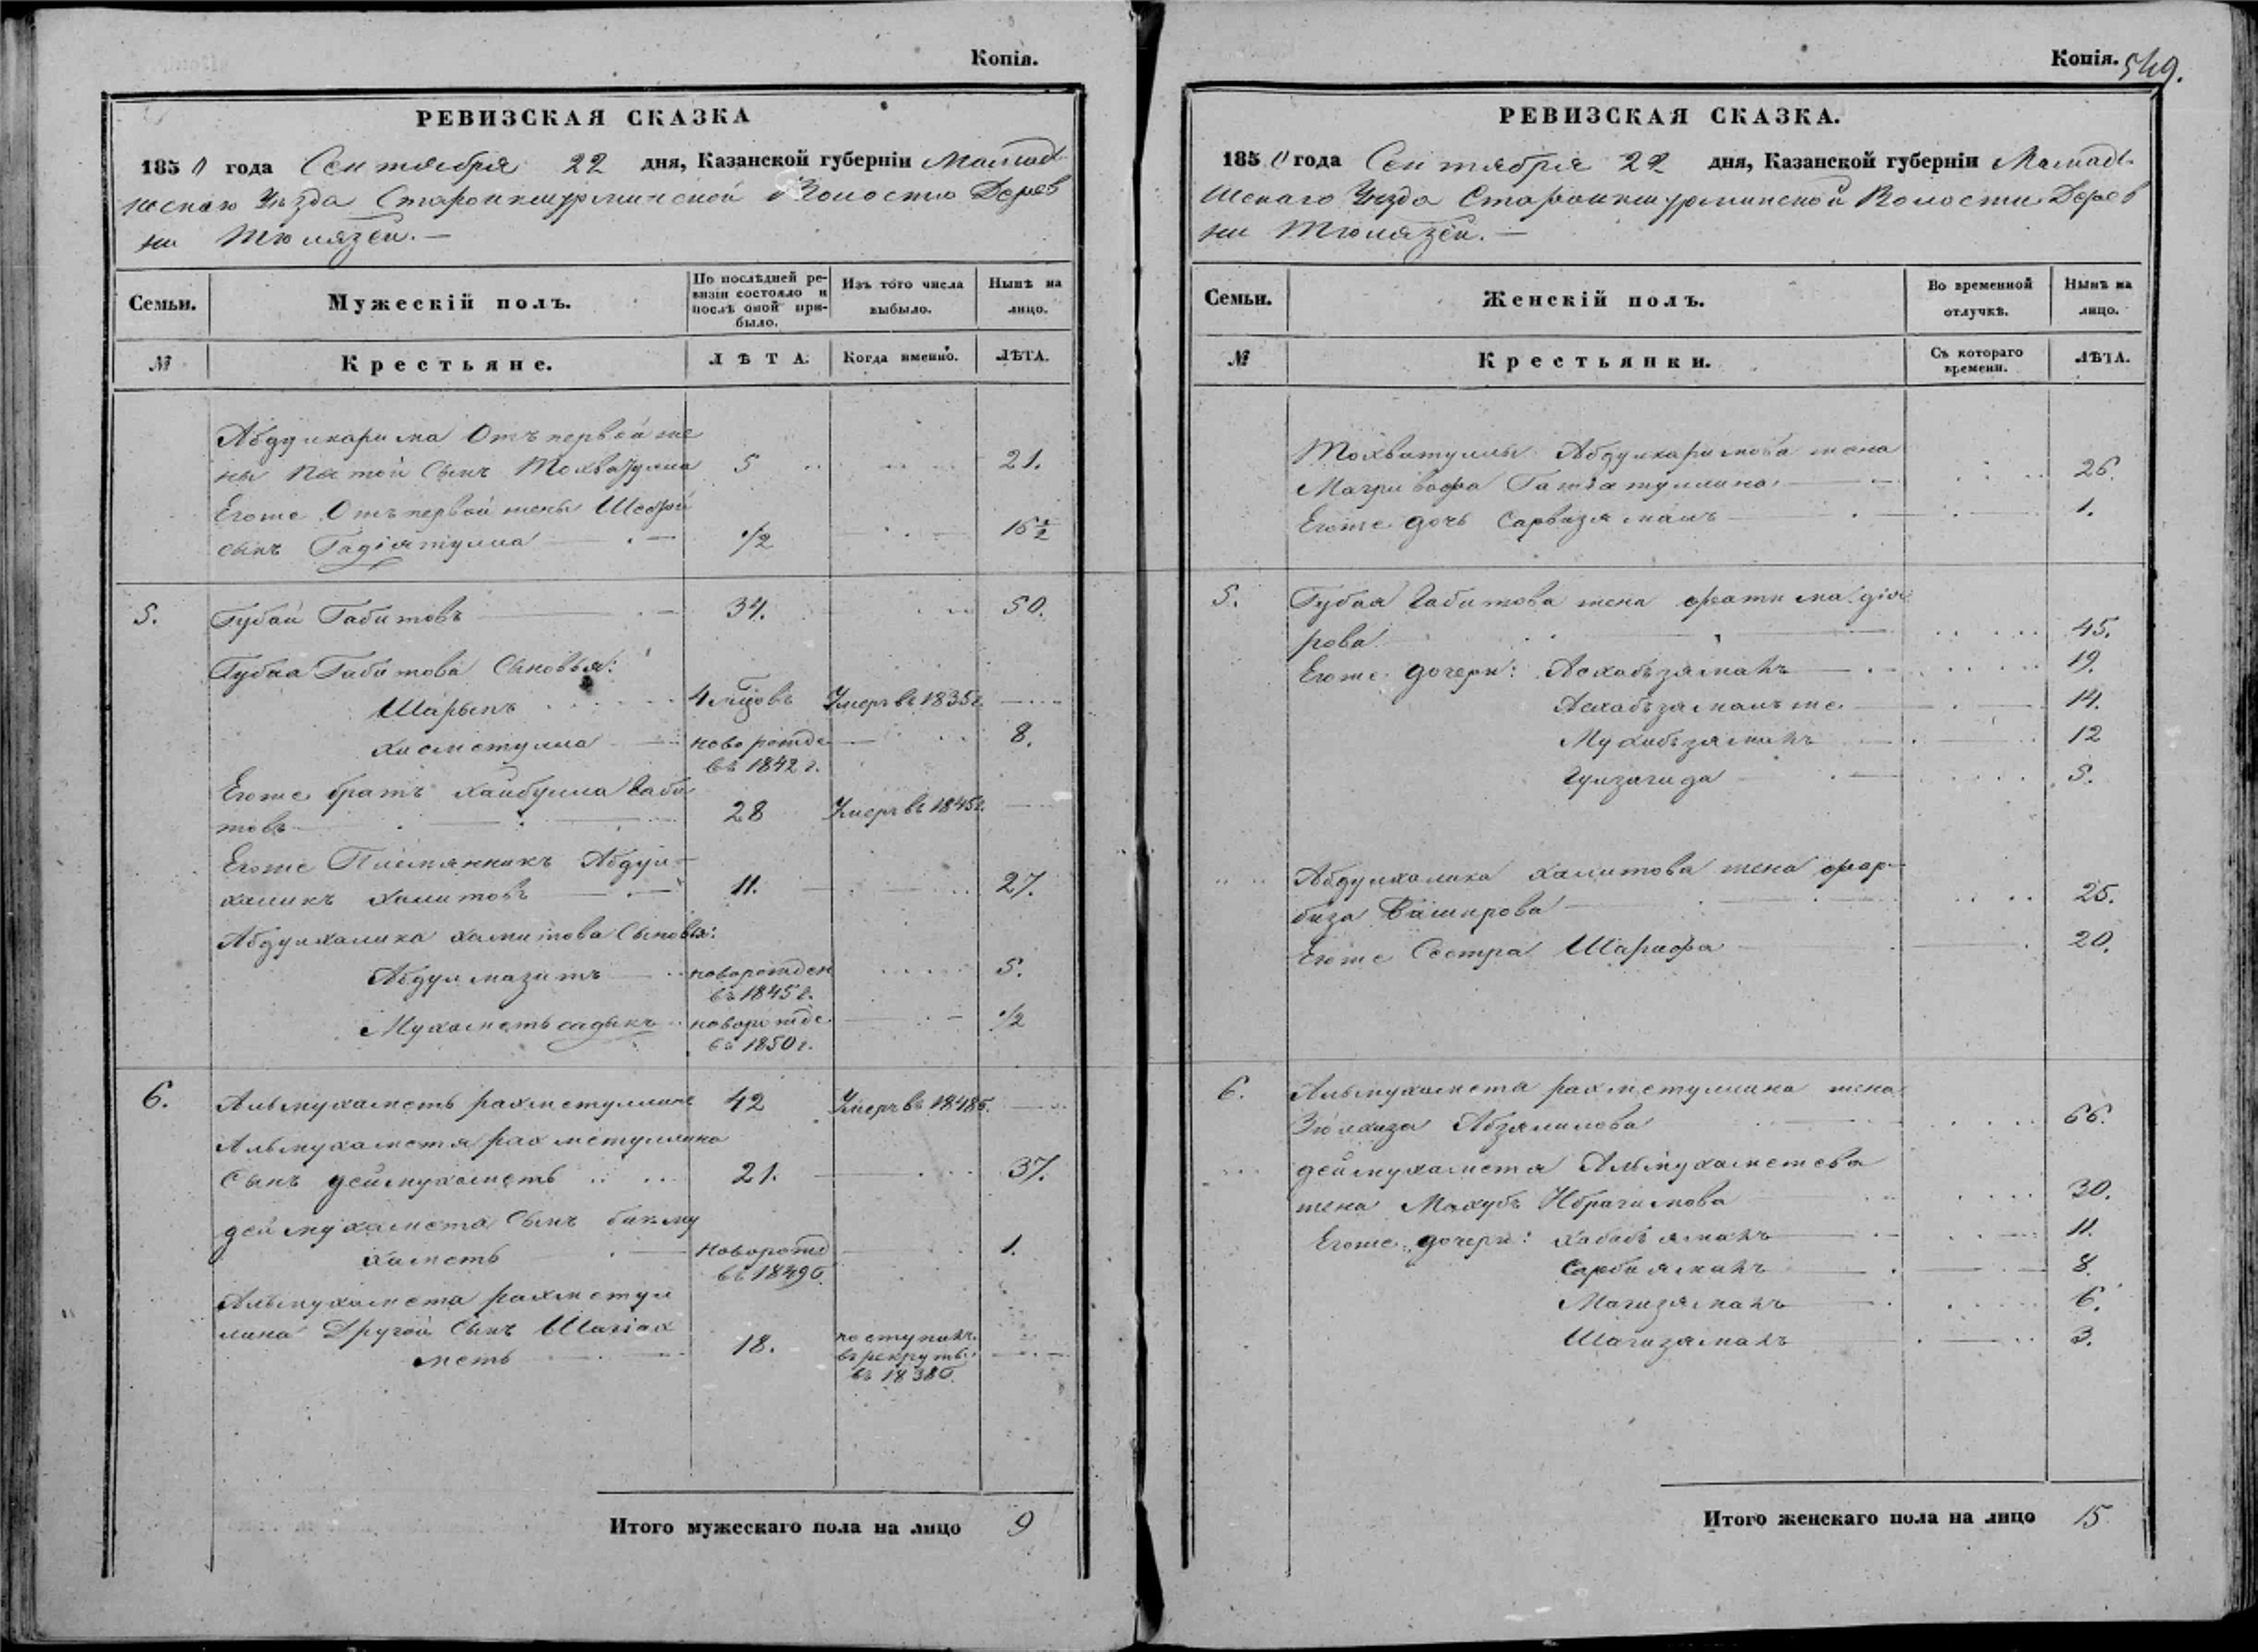 Копія.
РЕВИЗСКАЯ СКАЗКА
1850 года Сентября 22 дня, Казанской губерніи Мамад
шскаго Уѣзда Старокишурминской Волости Дерев
ни Тюлязей.
Семьи.
Мужескій полъ.
По послѣдней ре-
визіи состояло и
послѣ оной при-
было.
Изъ того числа
выбыло.
Нынѣ на
лицо.
№
Крестьяне.
ЛѢТА.
Когда именно.
ЛѢТА.
Абдулкарима Отъ первой же
ны пятой Сынъ Тохватулла 5 21.
Егоже Отъ первой жены Шестой
сынъ Гадіятулла 1/2 16 1/2
5. Губай Габитовъ 34. 50.
Губая Габитова Сыновья:
Шарыпъ 4 мѣсяцовъ Умеръ въ 1835г.
Хисметулла новорожде 8.
въ 1842 г.
Егоже братъ Хайбулла Габи
товъ 28 Умеръ въ 1845г.
Егоже Племянникъ Абдул-
халикъ Халитовъ 11. 27.
Абдулхалика Халитова Сыновья:
Абдулмазитъ новорожден 5.
въ 1845 г.
Мухаметьсадыкъ новорожде 1/2
въ 1850 г.
6. Альмухаметь рахметуллинъ 42 Умеръ въ 1848г.
Альмухаметя рахметуллина
Сынъ деймухаметь 21. 37.
деймухамета Сынъ бикму
хаметь новорожд 1.
въ 1849г.
Альмухамета рахметул
лина Другой Сынъ Шагіах
меть 18. поступилъ
въ рекруты
въ 1838г.
Итого мужескаго пола на лицо 9
Копія. 549.
РЕВИЗСКАЯ СКАЗКА.
1850 года Сентября 22 дня, Казанской губерніи Мамады-
шскаго Уѣзда Старокишурминской Волости Дерев
ни Тюлязей.
Семьи.
Женскій полъ.
Во временной
отлучкѣ.
Нынѣ на
лицо.
№
Крестьянки.
Съ котораго
времени.
ЛѢТА.
Тохватуллы Абдулкаримова жена
Магривафа Гатіатуллина 26.
Егоже дочь Сарвизяманъ 1.
5. Губая Габитова жена фатима дія
рова 45.
Егоже дочери: Асхабзяманъ 19.
Асхабзяманъ же 14.
Мухибзяманъ 12
Гулзагида 5.
Абдулхалика Халитова жена фар-
биза Баширова 25.
Егоже Сестра Шарифа 20.
6. Альмухамета рахметуллина жена
Зюлхиза Абзялилова 66.
деймухамета Альмухаметева
жена Махубъ Ибрагимова 30.
Егоже дочери: Хабибяманъ 11.
Сарбияманъ 8.
Магизяманъ 6.
Шагизяманъ 3.
Итого женскаго пола на лицо 15